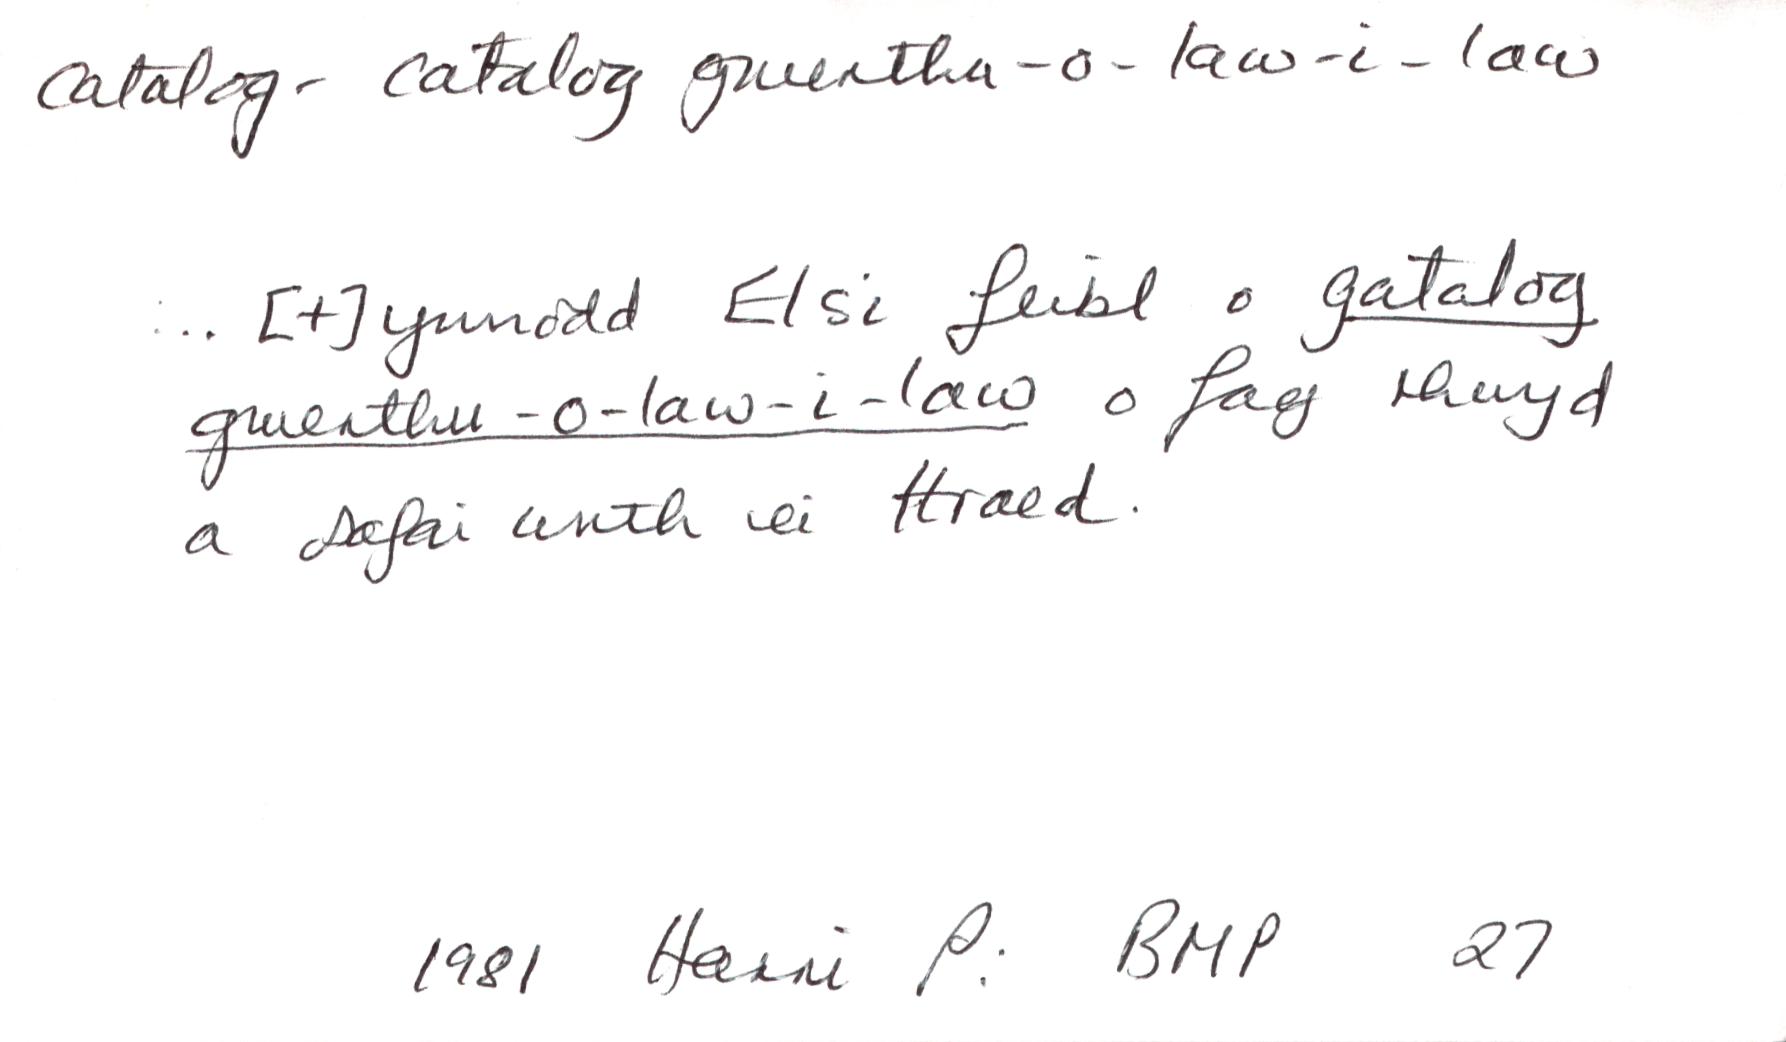 catalog - catalog gwerthu-o-law-i-law
... [t]ynnodd Elsi feibl o gatalog
gwerthu-o-law-i-law o fag rhwyd
a safai wrth ei thraed.
1981 Harri P: BMP 27